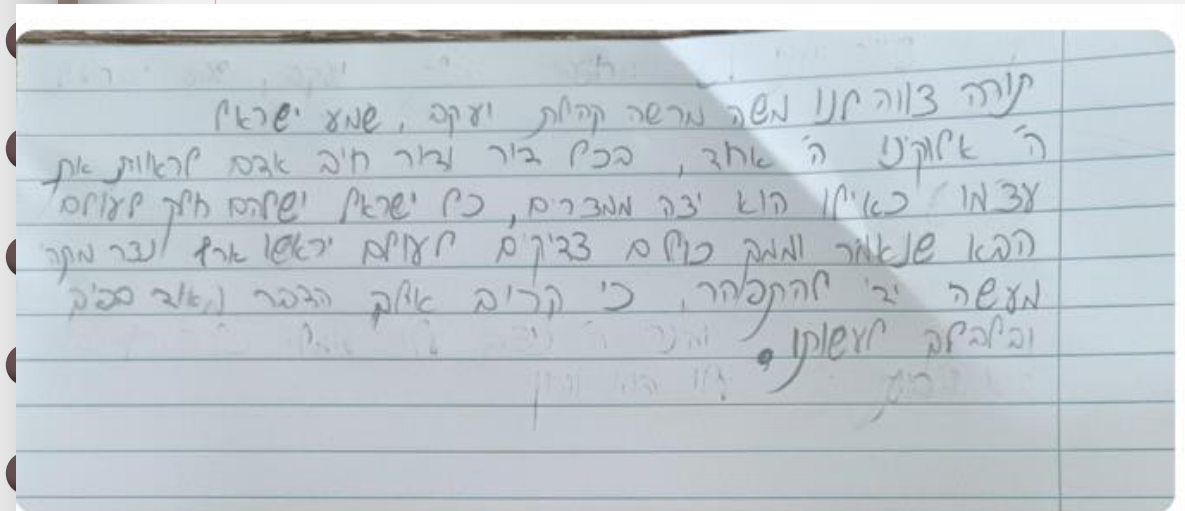 תורה צווה לנו משה מרשה קהלת יעקב, שמע ישראל
ה' אלוקינו ה' אחד, בכל דור ודור חיב אדם לראות את
עצמו כאילו הוא יצה ממצרים, כל ישראל ישלהם חלק לעולם
הבא שנאמר וממך כולם צדיקים לעולם יראשו ארץ נצר
מעשה ידי להתפאר, כי קרוב אליך הדבר מאוד בפיך
ובלבלב לעשותו.